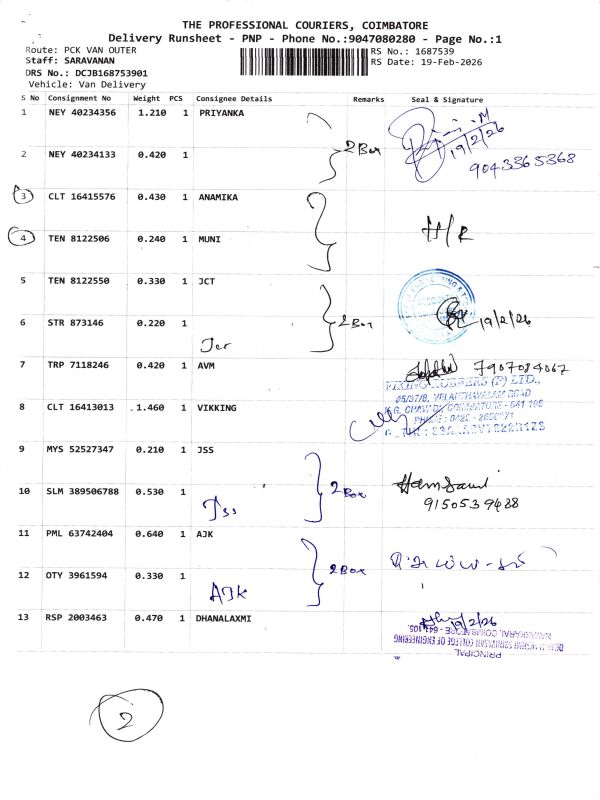 THE PROFESSIONAL COURIERS, COIMBATORE
Delivery Runsheet - PNP - Phone No.:9047080280 - Page No.:1
Route: PCK VAN OUTER
RS No.: 1687539
Staff: SARAVANAN
RS Date: 19-Feb-2026
DRS No.: DCJB168753901
Vehicle: Van Delivery
S No Consignment No Weight PCS Consignee Details Remarks Seal & Signature
1 NEY 40234356 1.210 1 PRIYANKA
2 Box
19/2/26
2 NEY 40234133 0.420 1
9043365368
3 CLT 16415576 0.430 1 ANAMIKA
H/R
4 TEN 8122506 0.240 1 MUNI
5 TEN 8122550 0.330 1 JCT
2 Box
19/2/26
6 STR 873146 0.220 1
Jcr
7 TRP 7118246 0.420 1 AVM
7907084067
8 CLT 16413013 1.460 1 VIKKING
9 MYS 52527347 0.210 1 JSS
2 Box
10 SLM 389506788 0.530 1
Jss
9150539488
11 PML 63742404 0.640 1 AJK
2 Box
12 OTY 3961594 0.330 1
AJK
13 RSP 2003463 0.470 1 DHANALAXMI
19/2/26
PRINCIPAL
2